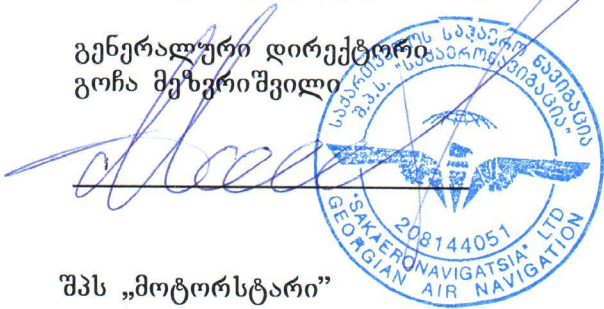 გენერალური დირექტორი
გოჩა მეზვრიშვილი
საქართველოს საჰაერო ნავიგაცია
შ.პ.ს. "საქაერონავიგაცია"
208144051
"SAKAERONAVIGATSIA" LTD
GEORGIAN AIR NAVIGATION
შპს „მოტორსტარი”